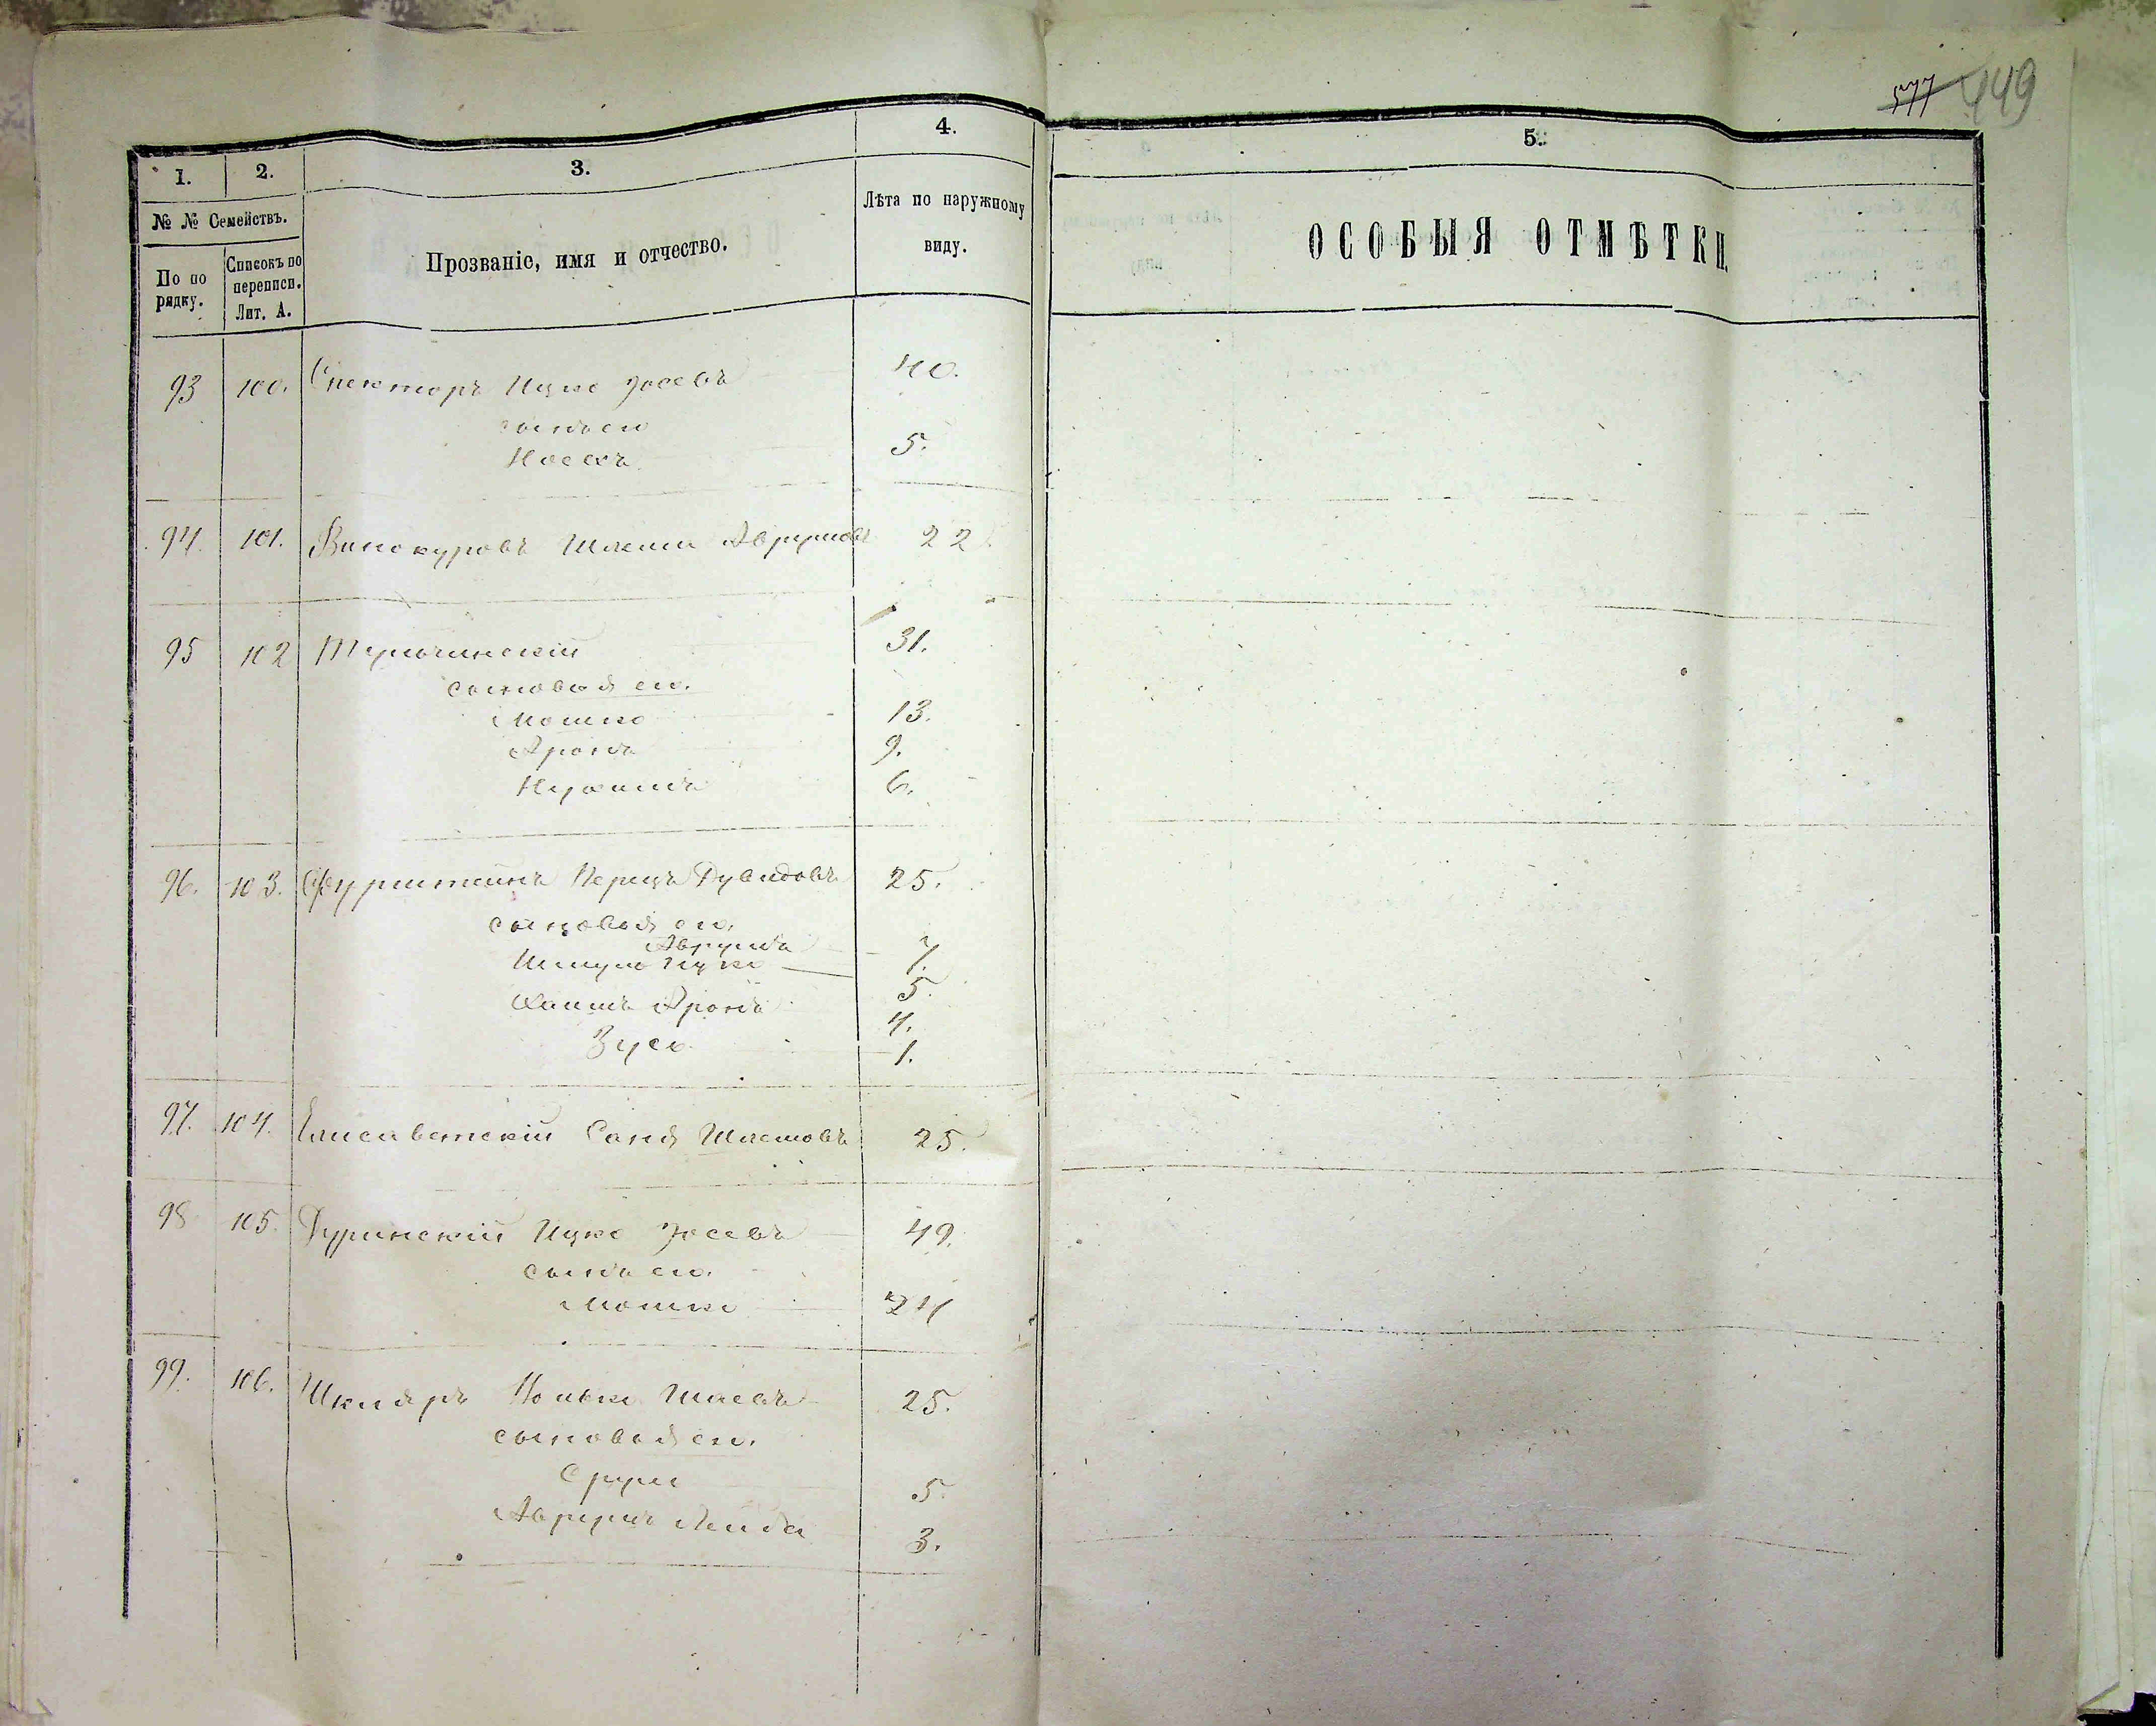 577 449
1. 2. 3. 4. 5.
№ № Семействъ.
По по рядку.
Списокъ по переписи. Лит. А.
Прозваніе, имя и отчество.
Лѣта по наружному виду.
ОСОБЫЯ ОТМѢТКИ.
93 100. Спекторъ Ицко Іосевъ 40.
сынъ его
Іосъ 5.
94. 101. Винокуровъ Шлема Аврумовъ 22
95 102 Тульчинскій 31.
сыновья его.
Мошко 13.
Аронъ 9.
Нухимъ 6.
96. 103. Фурштейнъ Перецъ Дувидовъ 25.
сыновья его.
Аврумъ 7.
Шмуль Ицко 5.
Хаимъ Аронъ 4.
Зусь 1.
97. 104. Елисаветскій Саня Шлемовъ 25.
98 105. Туринскій Ицко Іосевъ 49.
сынъ его.
Мошко 24
99. 106. Шкляръ Шаевъ 25.
сыновья его.
Сруль 5.
Аврумъ Лейба 3.